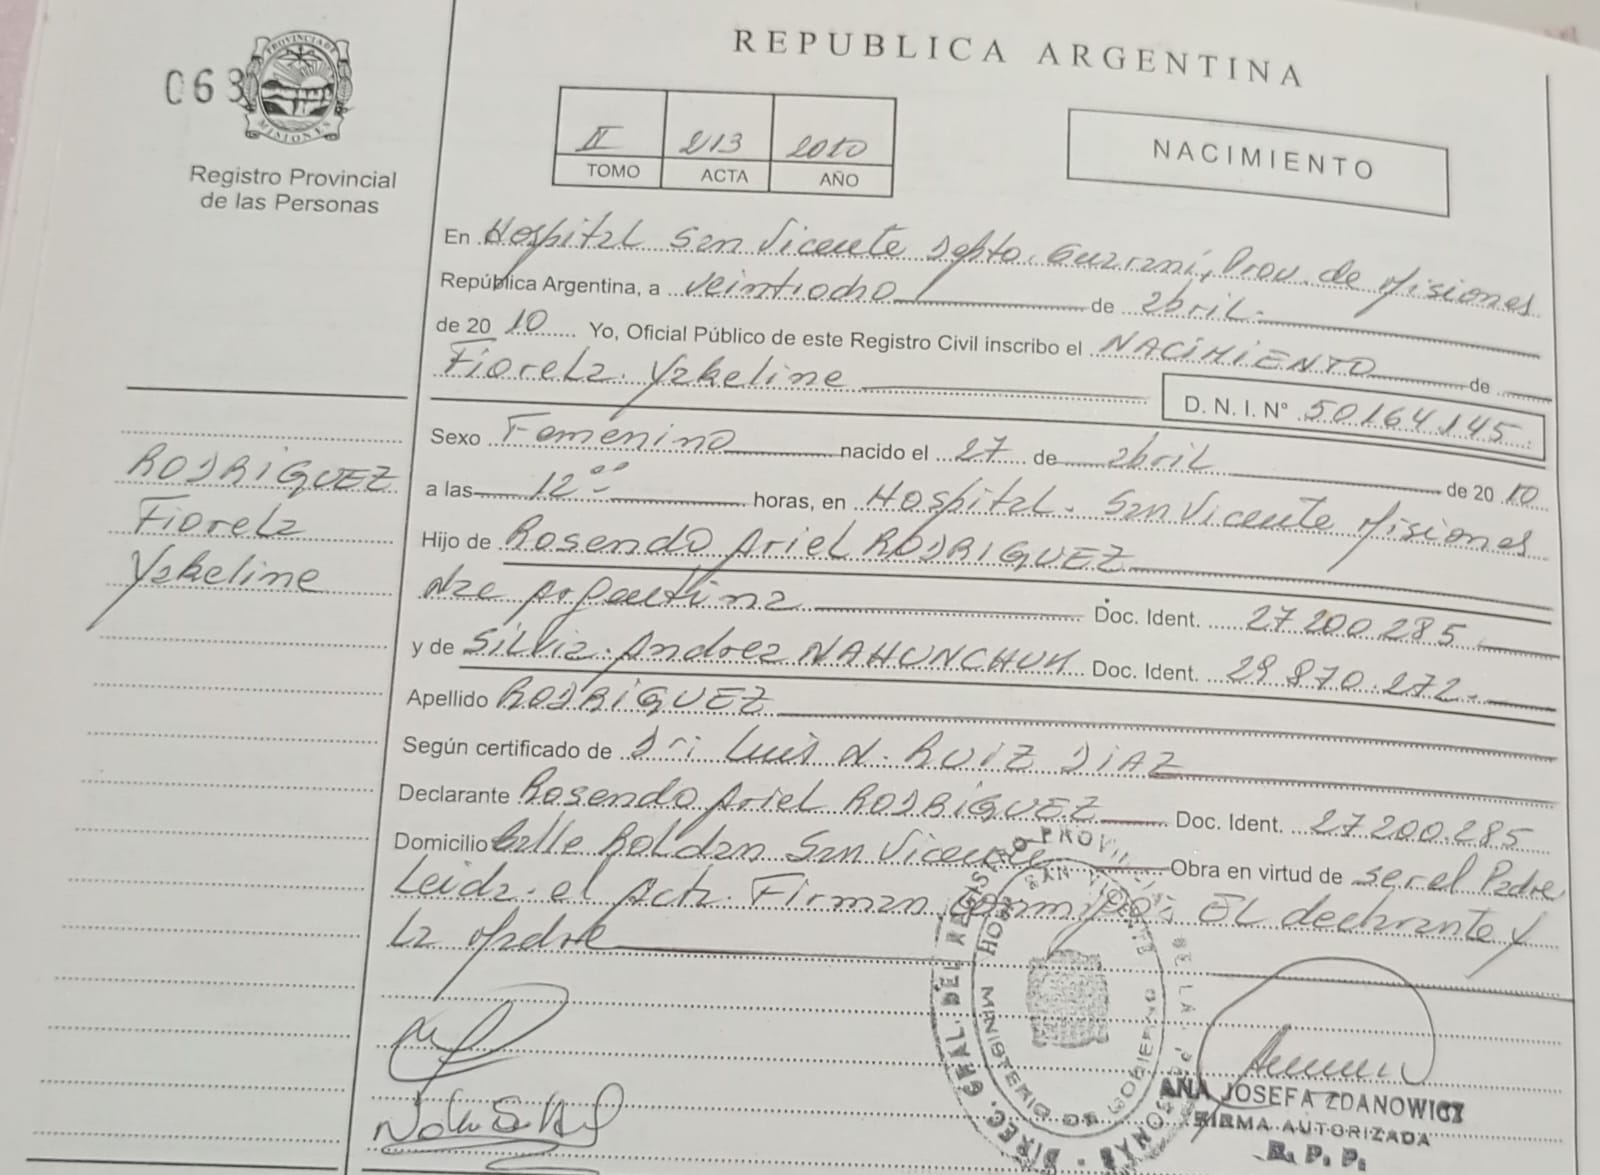 REPUBLICA ARGENTINA
063
PROVINCIA DE MISIONES
Registro Provincial
de las Personas
II 213 2010
TOMO ACTA AÑO
NACIMIENTO
En Hospital San Vicente Depto. Guaraní, Prov. de Misiones
República Argentina, a veintiocho de abril.
de 2010 Yo, Oficial Público de este Registro Civil inscribo el NACIMIENTO de
Fiorela Yakeline
D. N. I. Nº 50164145
Sexo Femenino nacido el 27 de abril de 2010
a las 12 00 horas, en Hospital San Vicente Misiones
Hijo de Rosendo Ariel RODRIGUEZ
Nac Argentina Doc. Ident. 27200.285
y de Silvia Andrea Doc. Ident. 29870.272.
Apellido RODRIGUEZ
Según certificado de Dr. Luis N. RUIZ DIAZ
Declarante Rosendo Ariel RODRIGUEZ Doc. Ident. 27200.285
Domicilio Calle Roldan San Vicente Obra en virtud de ser el Padre
Leida el Acta. Firman EL declarante y
la Madre
RODRIGUEZ
Fiorela
Yakeline
DIREC. GRAL. DEL REGISTRO PROVINCIAL DE LAS PERSONAS
MINISTERIO DE GOBIERNO
ANA JOSEFA ZDANOWICZ
FIRMA AUTORIZADA
R. P. P.